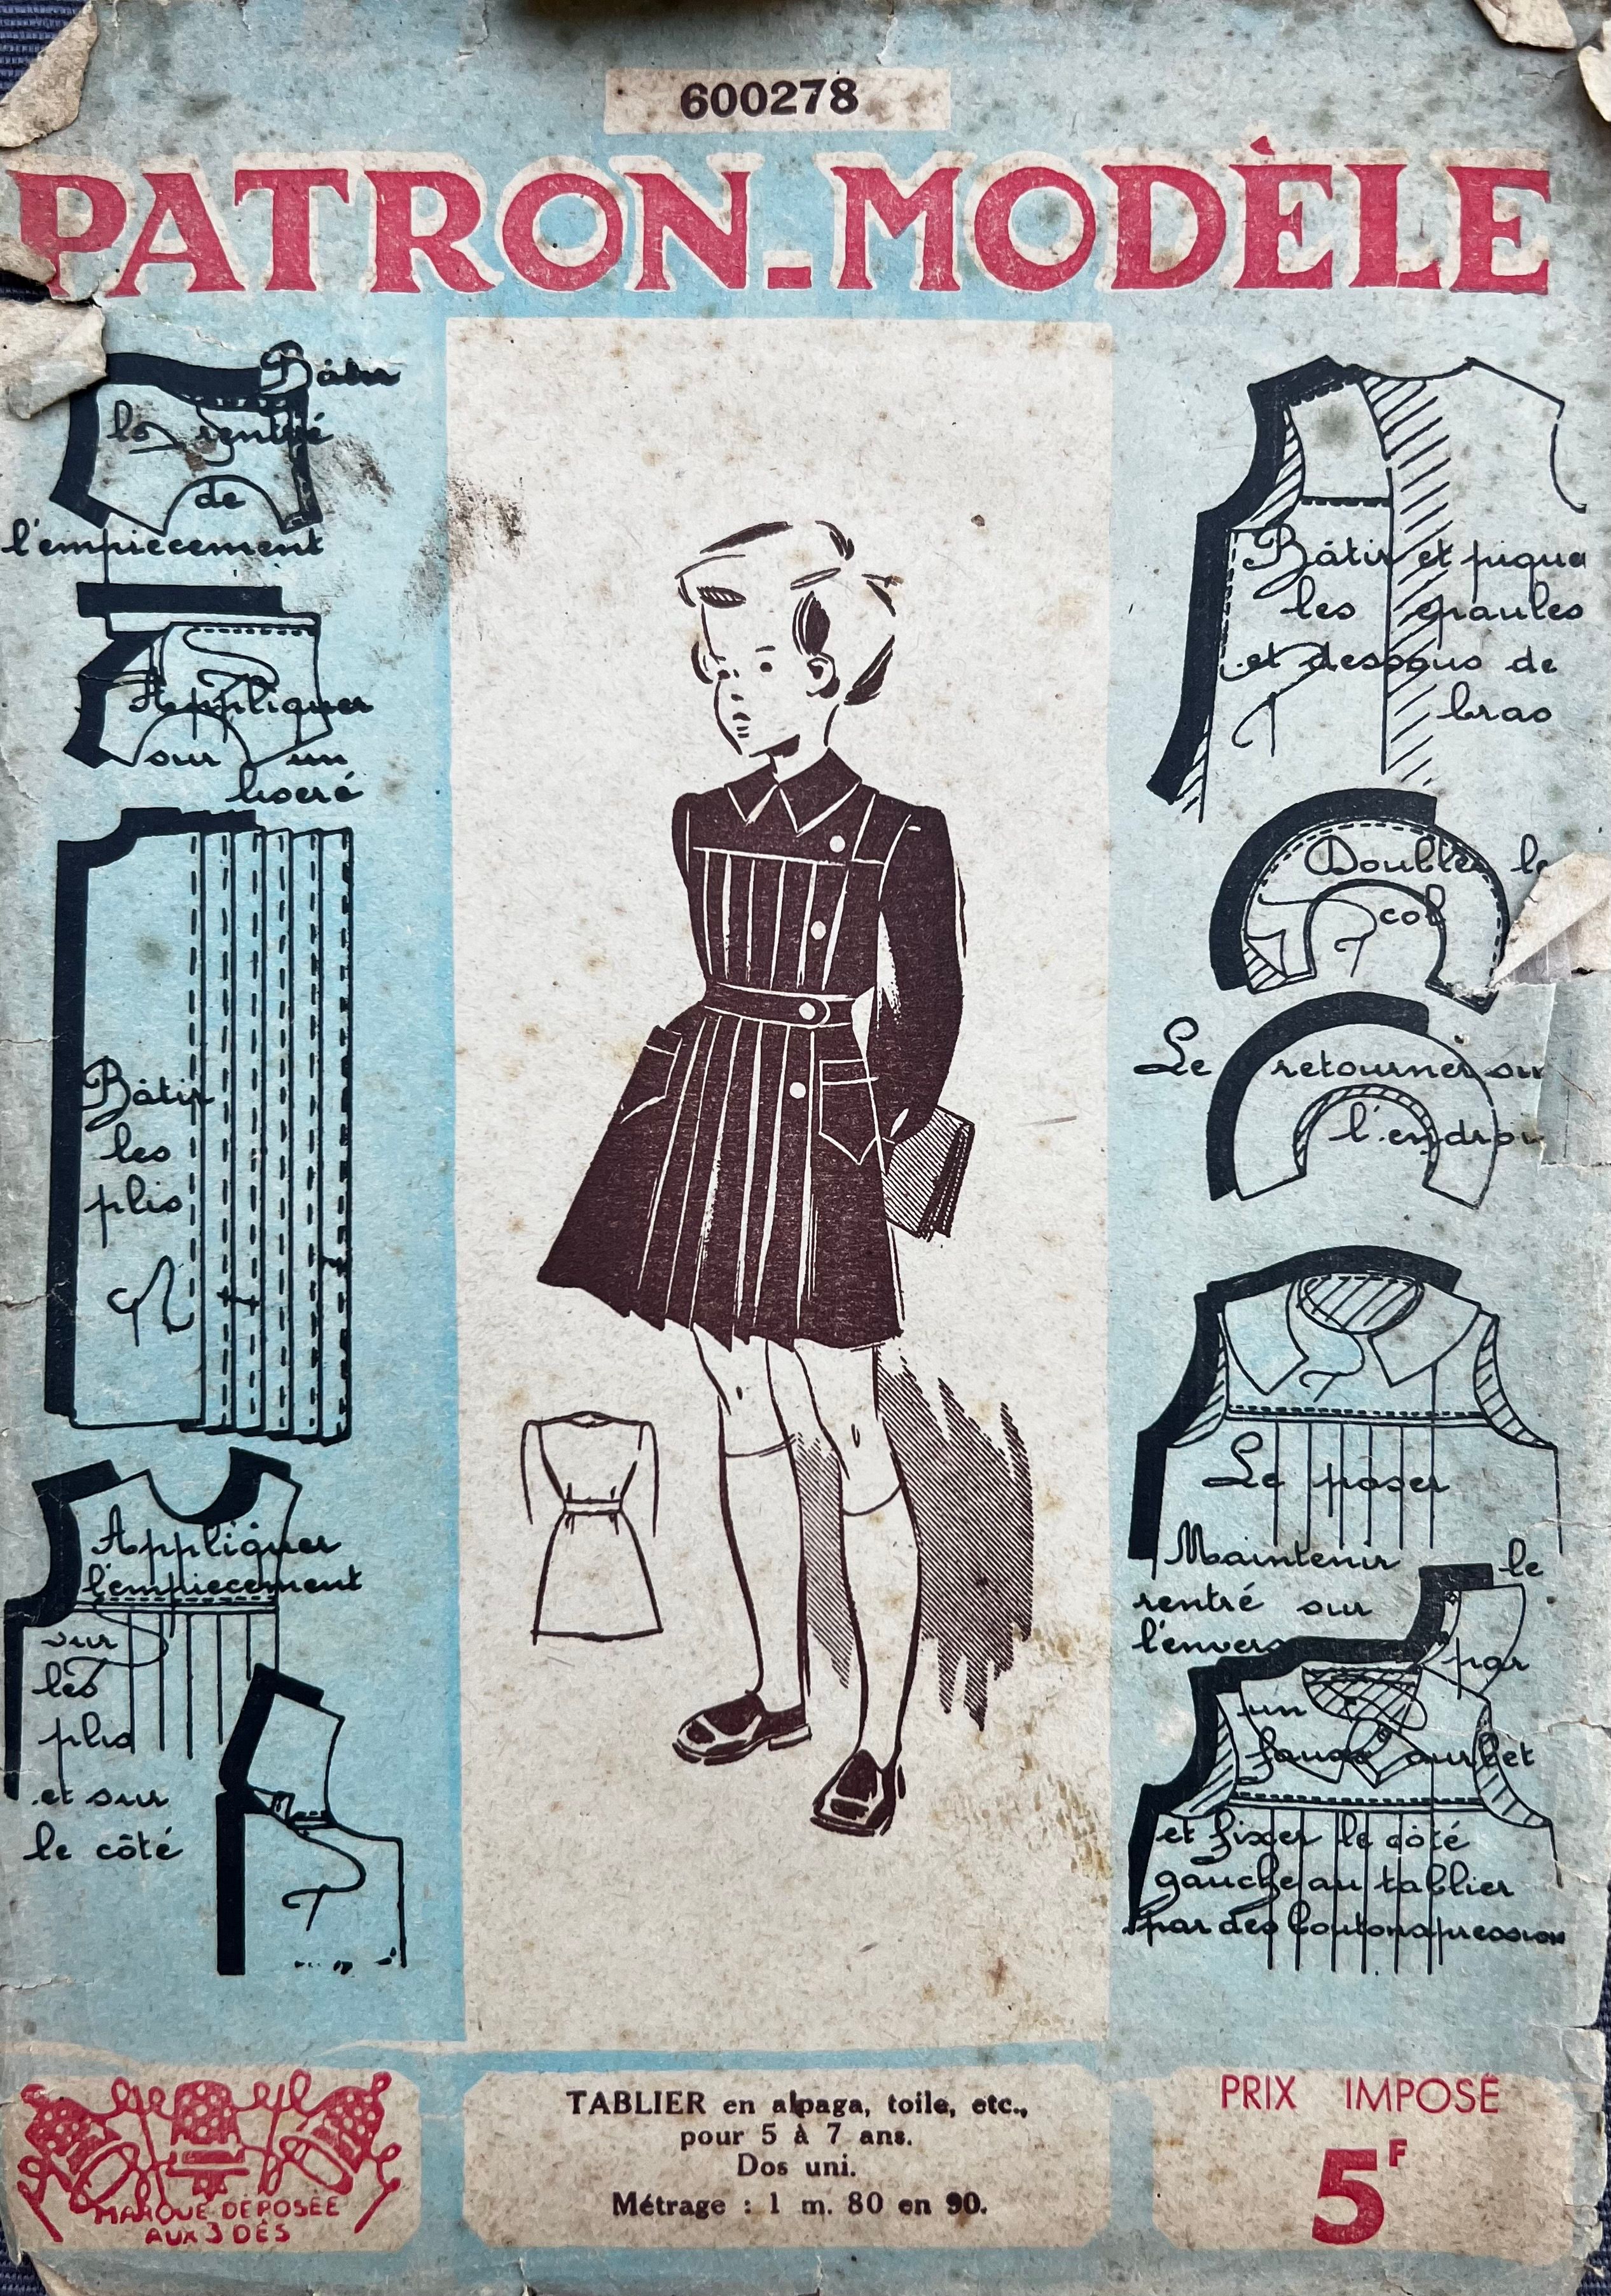 600278
PATRON-MODÈLE
Bâtir
le rentré
de
l'empiecement
Appliquer
sur un
liseré
Bâtir
les
plis
Appliquer
l'empiecement
sur
les
plis
et sur
le côté
Bâtir et pique
les epaules
et dessous de
bras
Doubler le
col
Le retourner sur
l'endroi
Le poser
Maintenir le
rentré sur
l'envers
par
un
faux ourlet
et fixer le côté
gauche au tablier
par des boutons pression
MARQUE DÉPOSÉE
AUX 3 DÉS
TABLIER en alpaga, toile, etc.,
pour 5 à 7 ans.
Dos uni.
Métrage : 1 m. 80 en 90.
PRIX IMPOSÉ
5F